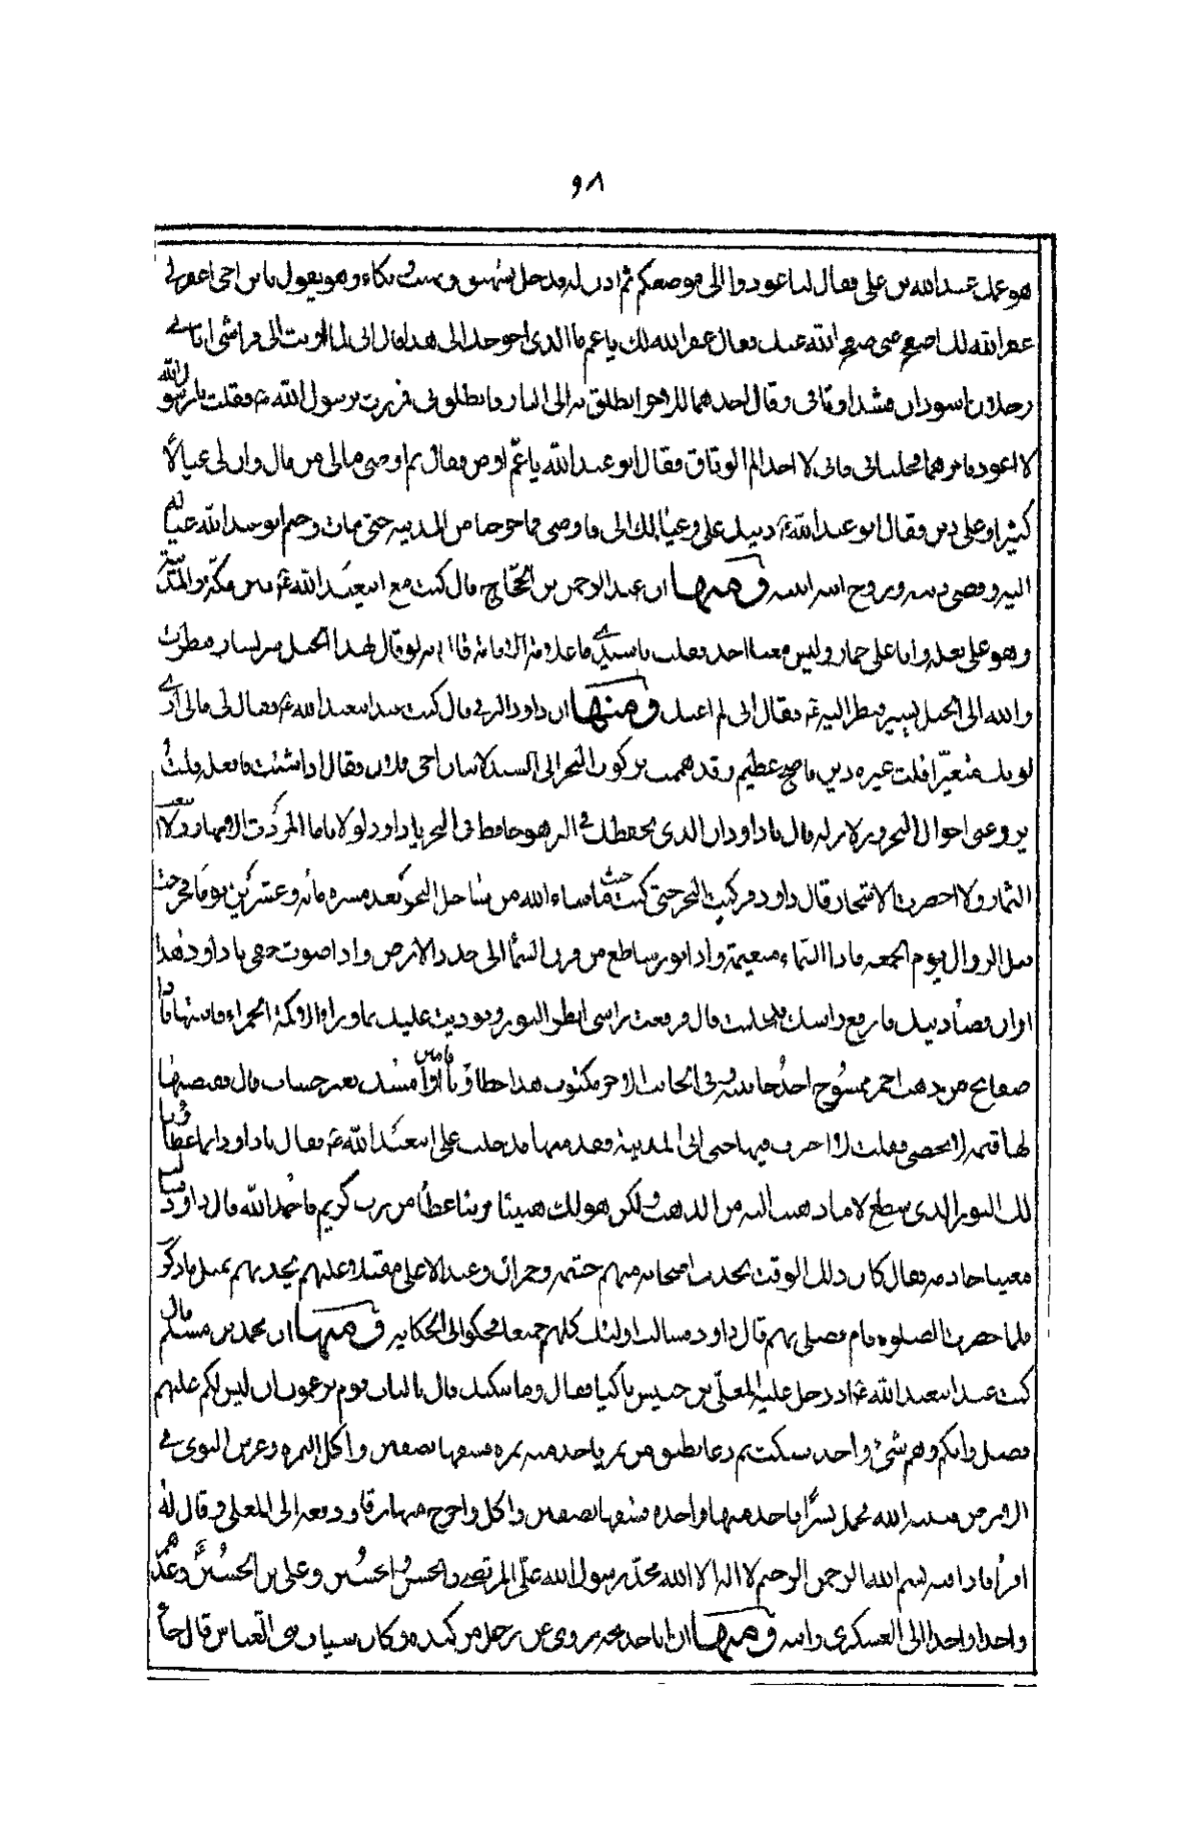 ٩٨
هو عمك عبد الله بن علي فقال لنا عودوا الى موضعكم ثم اذن له فدخل بشهيق وبكاء وهو يقول يا بن اخي اغفر لي
غفر الله لك اصفح عني صفح الله عنك فقال غفر الله لك يا عم ما الذي احوجك الى هذا قال اني لما اويت الى فراشي اتاني
رجلان اسودان فشدا وثاقي وقال احدهما للاخر انطلق به الى النار فانطلق بي فمررت برسول الله فقلت يا رسول الله
لا اعود فامرهما فخليا عني فاني لاجد الم الوثاق فقال ابو عبد الله يا عم اوص فقال بم اوصي مالي من مال وان لي عيالا
كثيرا وعلي دين فقال ابو عبد الله دينك علي وعيالك الي فاوصى فما خرجنا من المدينة حتى مات وضم ابو عبد الله عياله
اليه وقضى دينه وزوج ابنه ابنته ومنها ان عبد الرحمن بن الحجاج قال كنت مع ابي عبد الله بين مكة والمدينة
وهو على بغله وانا على حمار وليس معنا احد فقلت يا سيدي ما علامة الامامة قال انه لو قال لهذا الجبل سر لسار فنظرت
والله الى الجبل يسير فنظر اليه فقال اني لم اعنك ومنها ان داود الرقي قال كنت عند ابي عبد الله فقال لي مالي ارى
لونك متغيرا قلت غيره دين فاضح عظيم وقد هممت بركوب البحر الى السند لاتيان اخي فلان فقال اذا شئت فافعل قلت
يروعني اهوال البحر وزلازله قال يا داود ان الذي يحفظك في البر هو حافظ في البحر يا داود لولانا ما اطردت الانهار ولا اينعت
الثمار ولا اخضرت الاشجار قال داود فركبت البحر حتى كنت حيث ما شاء الله من ساحل البحر بعد مسيرة مائة وعشرين يوما فخرجت
قبل الزوال يوم الجمعة فاذا السماء متغيمة واذا نور ساطع من قرن السماء الى جدد الارض واذا صوت خفي يا داود هذا
اوان قضاء دينك فارفع راسك قد سلمت قال فرفعت راسي انظر النور ونوديت عليك بما وراء الاكمة الحمراء فاتيتها فاذا
صفايح من ذهب احمر ممسوح احد جانبيه وفي الجانب الاخر مكتوب هذا عطاؤنا فامنن او امسك بغير حساب قال فقبضتها
لها قيمة لا تحصى فقلت لا احدث فيها حتى اتي المدينة فقدمتها فدخلت على ابي عبد الله فقال يا داود انما عطاؤنا
لك النور الذي سطع لك لا ما ذهبت اليه من الذهب ولكن هو لك هنيئا مريئا عطاء من رب كريم فاحمد الله قال داود فسالت
معتبا خادمه فقال كان ذلك الوقت يحدث اصحابه منهم خيثمة وحمران وعبد الاعلى مقبلا عليهم يحدثهم بمثل ما ذكرت
فلما حضرت الصلوة قام فصلى بهم قال داود فسالت اولئك كلهم جميعا فحكوا لي الحكاية ومنها ان محمد بن مسلم قال
كنت عند ابي عبد الله اذ دخل عليه المعلى بن خنيس باكيا فقال وما يبكيك قال بالباب قوم يزعمون ان ليس لكم عليهم
فضل وانكم وهم شيء واحد فسكت ثم دعا بطبق من تمر فاخذ منه تمرة فشقها نصفين واكل التمرة وغرس النوى في
الارض فنبتت فحمل بسرا فاخذ منها واحدة فشقها نصفين واكل واخرج منها رقا ودفعه الى المعلى وقال له
اقرأ فاذا فيه بسم الله الرحمن الرحيم لا اله الا الله محمد رسول الله علي المرتضى والحسن والحسين وعلي بن الحسين وعدهم
واحدا واحدا الى العسكري وابنه ومنها ان ابا خديجة روى عن رجل من كندة وكان سياف بني العباس قال جاء